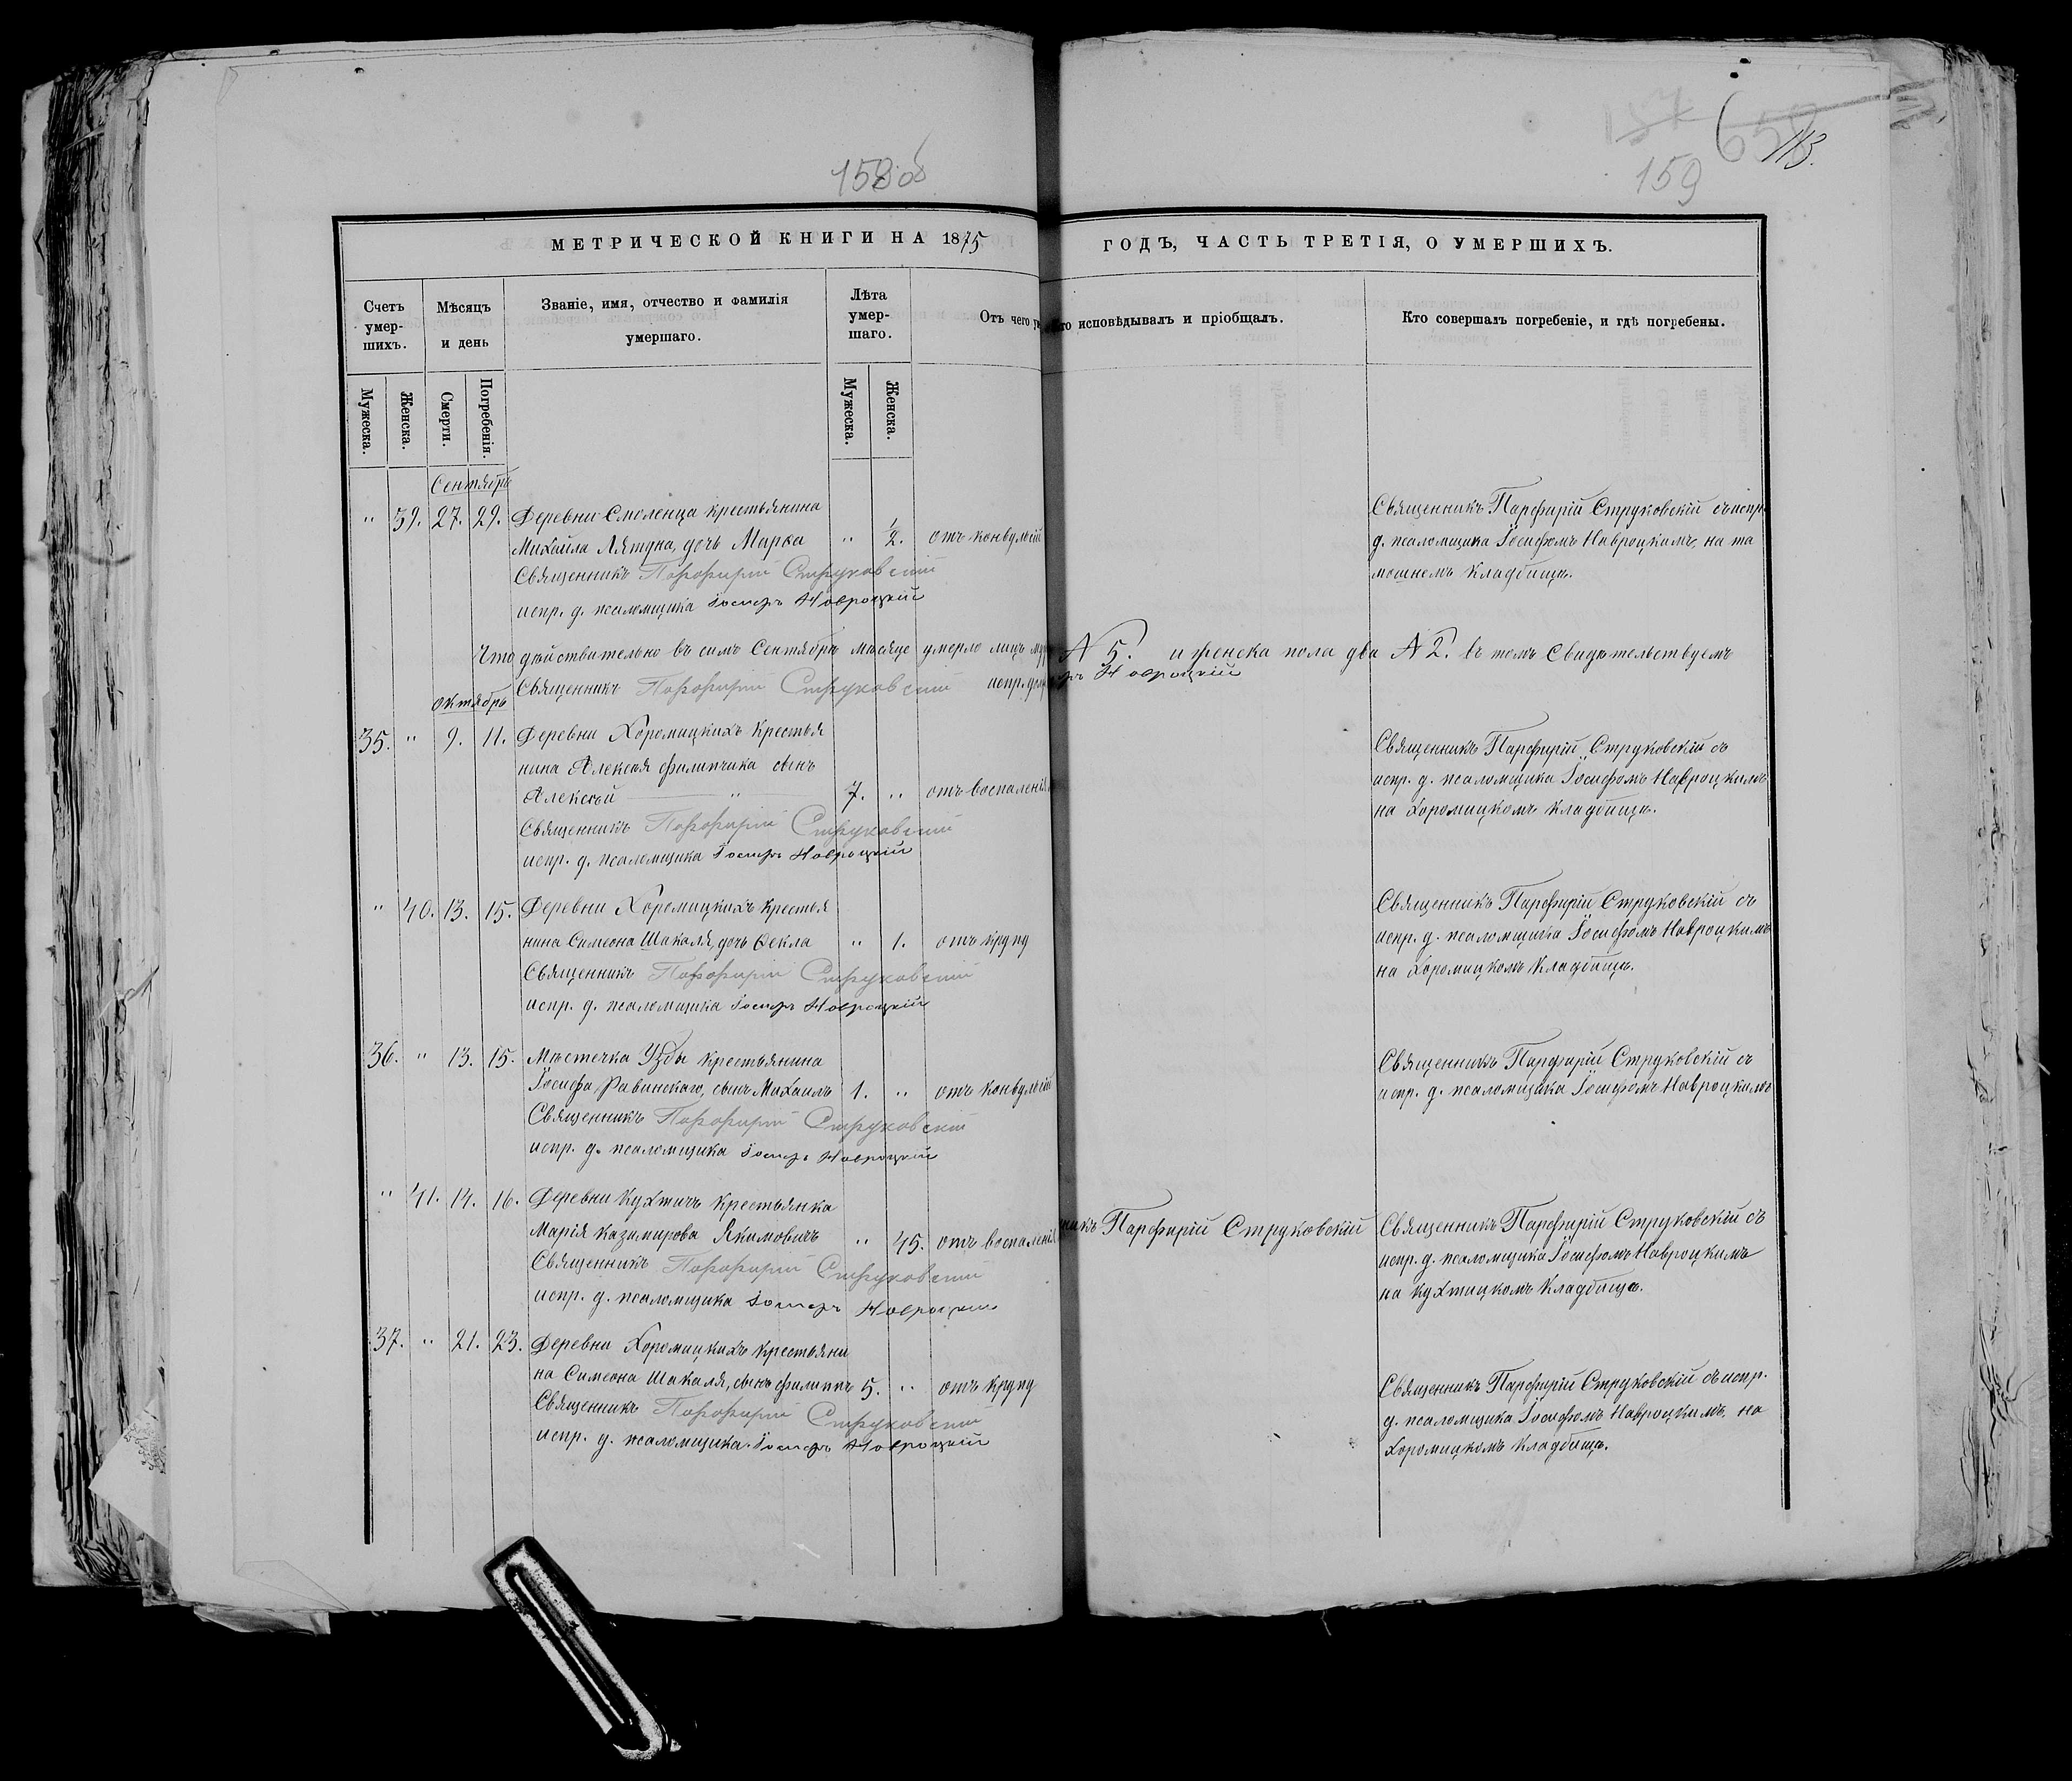 158 об
159
113.
МЕТРИЧЕСКОЙ КНИГИ НА 1875
ГОДЪ, ЧАСТЬ ТРЕТІЯ, О УМЕРШИХЪ.
Счетъ умершихъ.
Мѣсяцъ и день
Званіе, имя, отчество и фамилія умершаго.
Лѣта умершаго.
Отъ чего
Кто исповѣдывалъ и пріобщалъ.
Кто совершалъ погребеніе, и гдѣ погребены.
Мужеска.
Женска.
Смерти.
Погребенія.
Мужеска.
Женска.
Сентябрь
" 39. 27. 29. Деревни Смоленца крестьянина
Михаила Лятуна, дочь Марѳа " ½. отъ конвульсій
Священникъ Порфирій Струковскій
испр. д. псаломщика Іосифъ Навроцкій
Священникъ Парфирій Струковскій съ испр.
д. псаломщика Іосифомъ Навроцкимъ, на та
мошнемъ кладбищѣ.
Что дѣйствительно въ семъ Сентябрѣ мѣсяце умерло лицъ
№ 5. и женска пола два № 2. въ томъ свидѣтельствуемъ
Священникъ Порфирій Струковскій испр.
Навроцкій
Октябрь
35. " 9. 11. Деревни Хоромицкихъ крестья
нина Алексѣя Филипчика сынъ
Алексѣй " 7. " отъ воспаленія
Священникъ Порфирій Струковскій
испр. д. псаломщика Іосифъ Навроцкій
Священникъ Парфирій Струковскій съ
испр. д. псаломщика Іосифомъ Навроцкимъ
на Хоромицкомъ кладбищѣ.
" 40. 13. 15. Деревни Хоромицкихъ крестья
нина Симеона Шакаля, дочь Ѳекла " 1. отъ крупу
Священникъ Порфирій Струковскій
испр. д. псаломщика Іосифъ Навроцкій
Священникъ Парфирій Струковскій съ
испр. д. псаломщика Іосифомъ Навроцкимъ
на Хоромицкомъ кладбищѣ.
36. " 13. 15. Мѣстечка Узды крестьянина
Іосифа Равинскаго, сынъ Михаилъ 1. " отъ конвульсій
Священникъ Порфирій Струковскій
испр. д. псаломщика Іосифъ Навроцкій
Священникъ Парфирій Струковскій съ
испр. д. псаломщика Іосифомъ Навроцкимъ
" 41. 14. 16. Деревни Кухтичъ крестьянка
Марія Казимирова Якимовичъ " 45. отъ воспаленія
Священникъ Порфирій Струковскій
испр. д. псаломщика Іосифъ Навроцкій
никъ Парфирій Струковскій
Священникъ Парфирій Струковскій съ
испр. д. псаломщика Іосифомъ Навроцкимъ
на Кухтицкомъ кладбищѣ.
37. " 21. 23. Деревни Хоромицкихъ крестьяни
на Симеона Шакаля, сынъ Филиппъ 5. " отъ крупу
Священникъ Порфирій Струковскій
испр. д. псаломщика Іосифъ Навроцкій
Священникъ Парфирій Струковскій съ испр.
д. псаломщика Іосифомъ Навроцкимъ, на
Хоромицкомъ кладбищѣ.